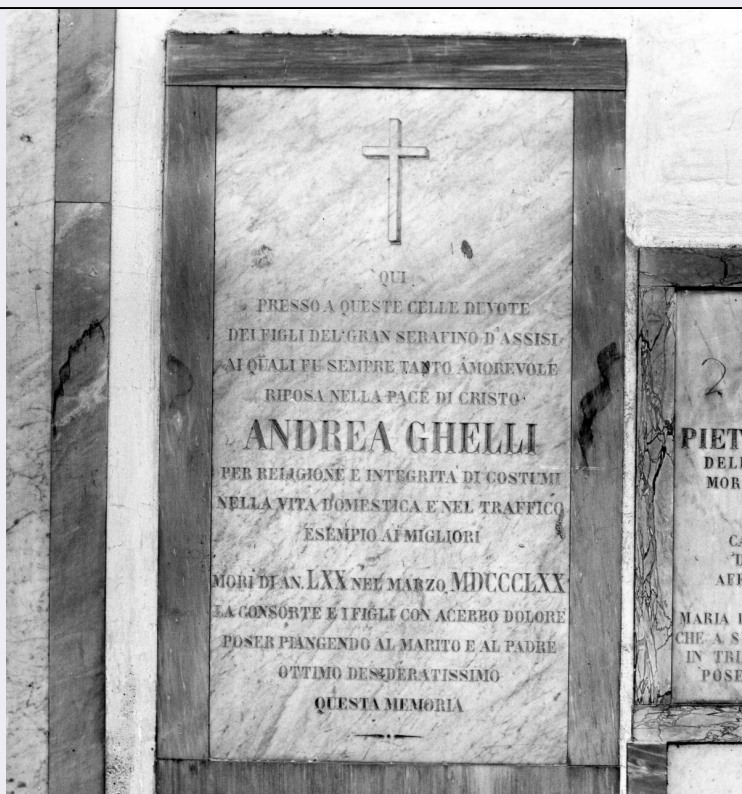 QUI
PRESSO A QUESTE CELLE DEVOTE
DEI FIGLI DEL GRAN SERAFINO D'ASSISI
AI QUALI FU SEMPRE TANTO AMOREVOLE
RIPOSA NELLA PACE DI CRISTO
ANDREA GHELLI
PER RELIGIONE E INTEGRITA' DI COSTUMI
NELLA VITA DOMESTICA E NEL TRAFFICO
ESEMPIO AI MIGLIORI
MORÌ DI AN. LXX NEL MARZO MDCCCLXX
LA CONSORTE E I FIGLI CON ACERBO DOLORE
POSER PIANGENDO AL MARITO E AL PADRE
OTTIMO DESIDERATISSIMO
QUESTA MEMORIA
2
PIET
DELL
MOR
CA
AFF
MARIA
CHE A S
IN TRI
POSE